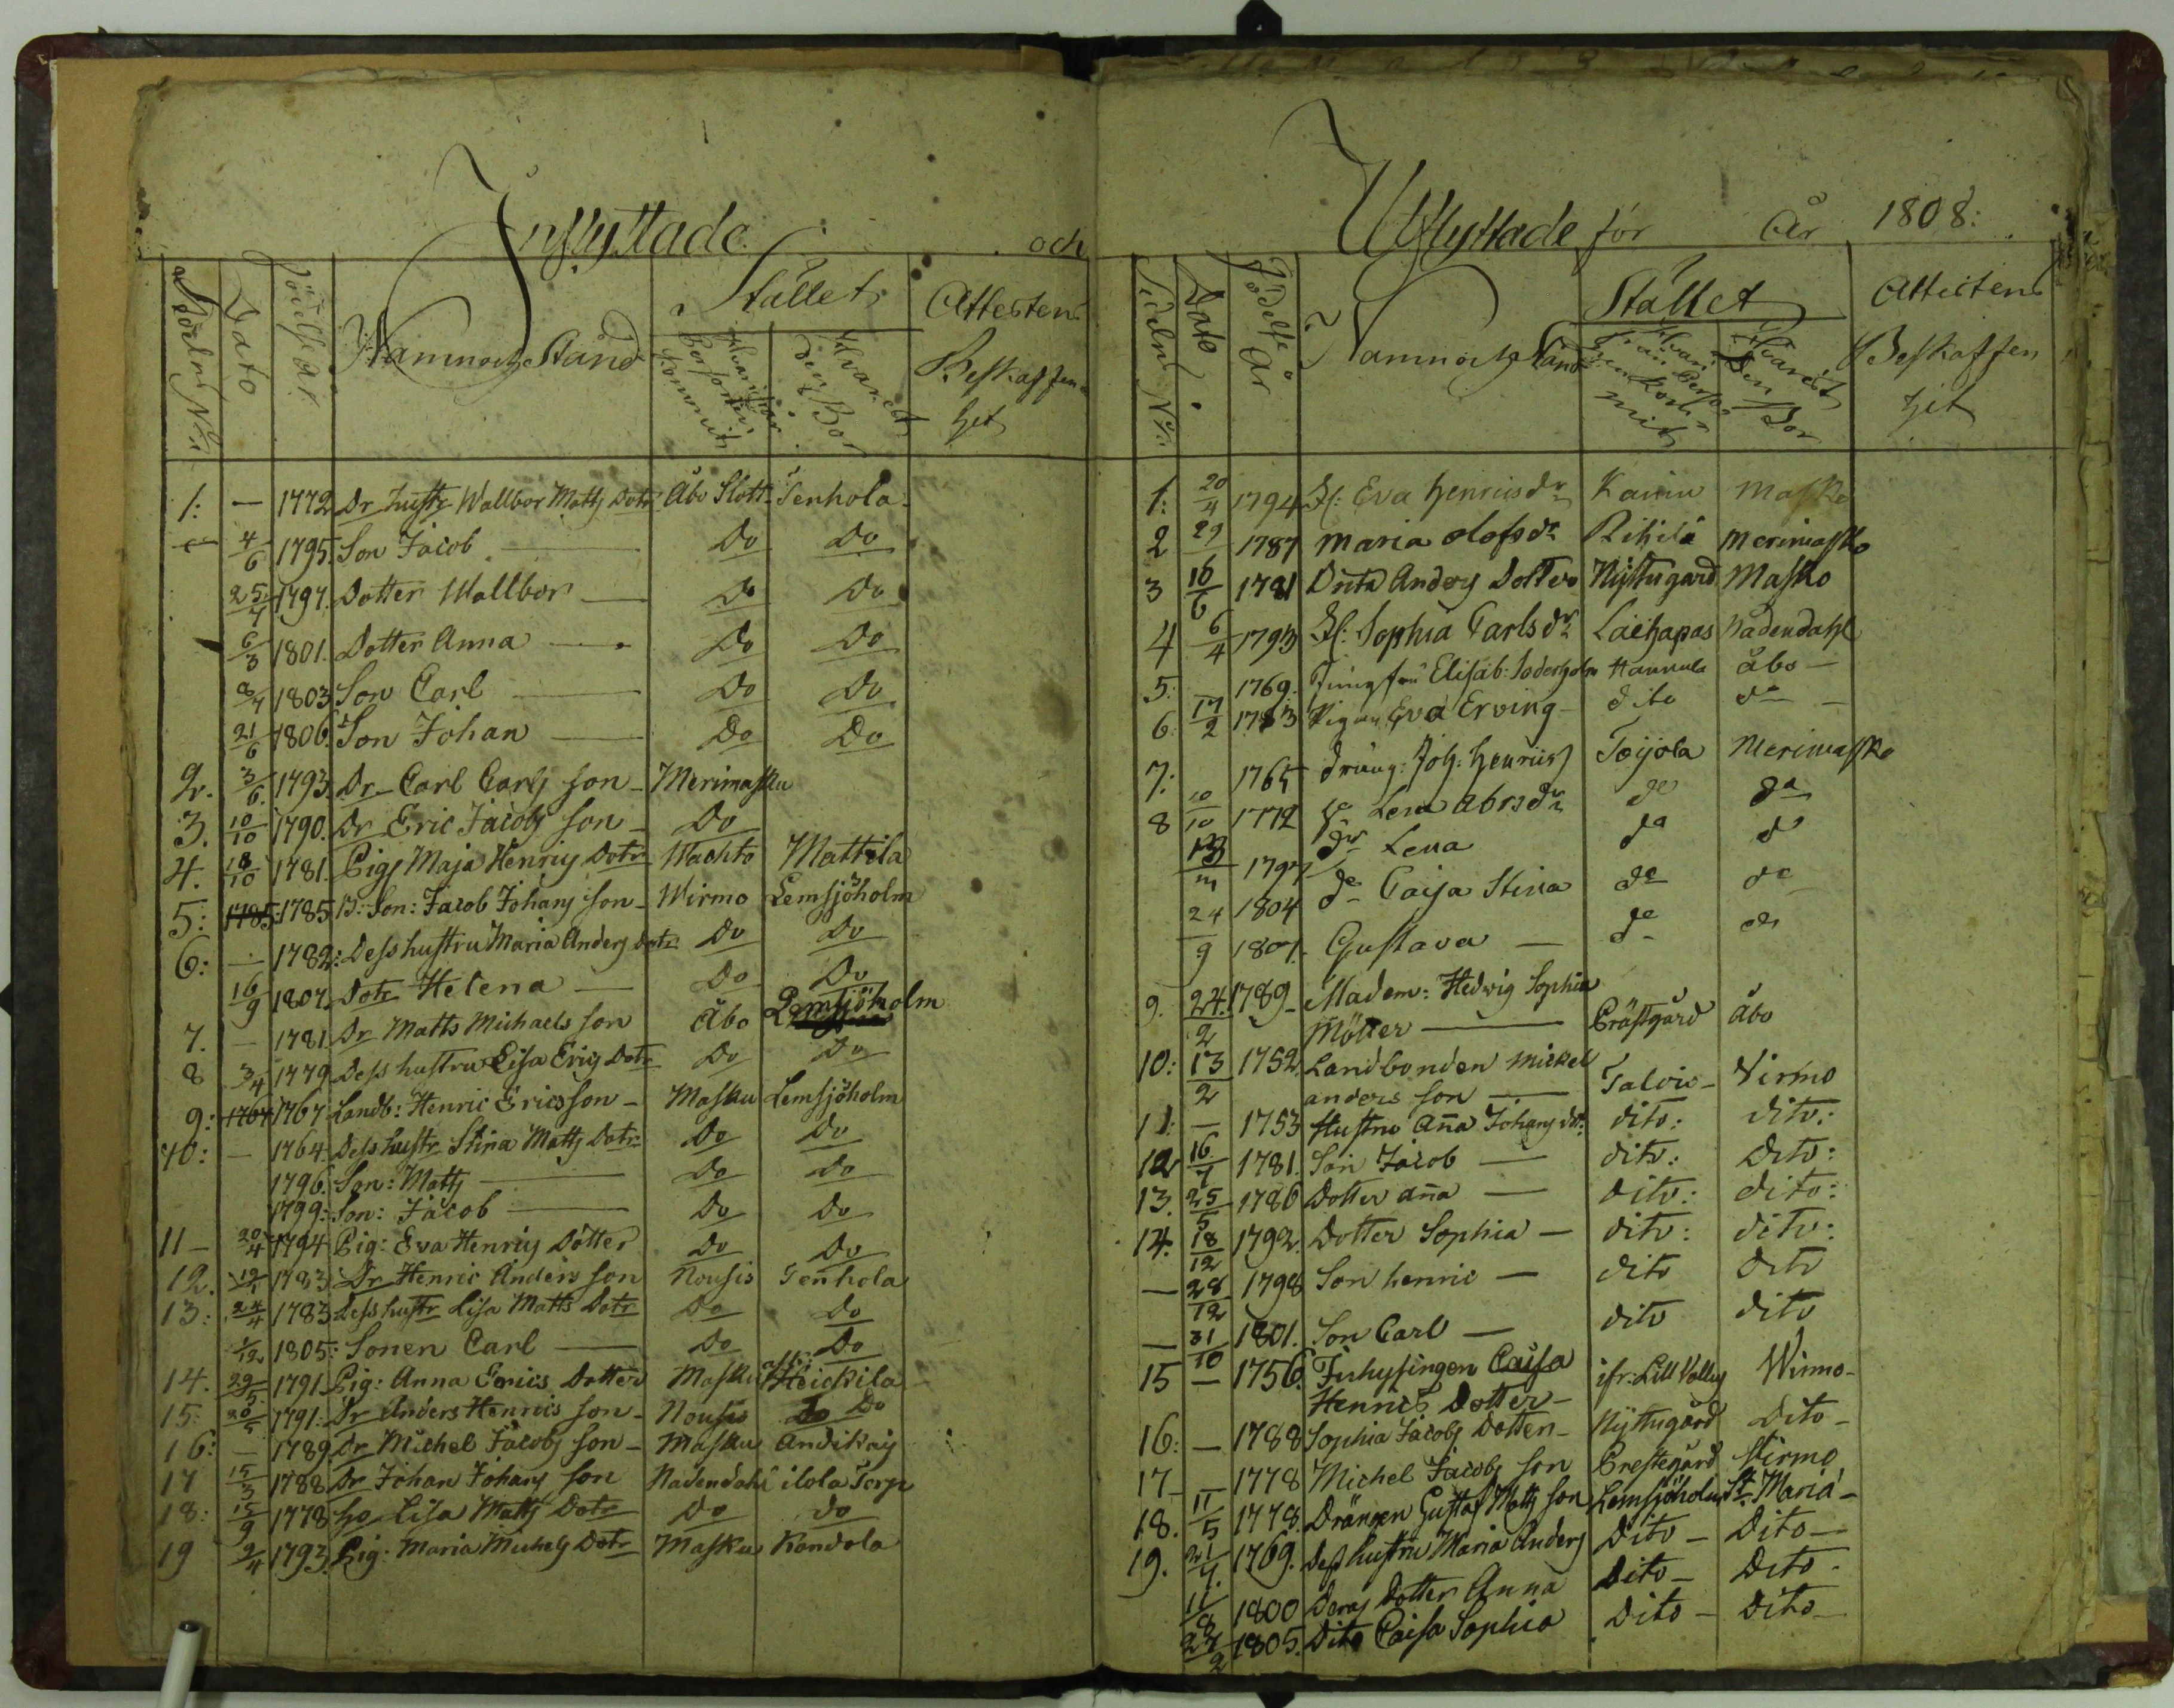 Inflyttade och
Sedeln No
Dato
Födelse År
Namn och Stånd
Stället
Hvarifrån Personen kommit
Hvarest den Bor
Attesten
Beskaffen
het
1: — 1772 Dr hustr Wallbor Matts Dotr Åbo Slott Tenhola
4/6 1795. Son Jacob — Do Do
25/7 1797. Dotter Wallbor — Do Do
6/3 1801. Dotter Anna — Do Do
8/7 1803 Son Carl — Do Do
21/6 1806. Son Johan — Do Do
2. 3/6. 1793. Dr Carl Carls son - Merimasku
3. 10/10 1790. Dr Eric Jacobs son - Do
4. 18/10 1781. Pigs Maja Henrics Dotr Wachto Mattila
5: 1785: 1785 B: Son: Jacob Johans son - Wirmo Lemsjöholm
6: — 1782: Dess hustru Maria Anders Dotr Do Do
16/9 1807. Dotr Helena — Do Do
7. — 1781. Dr Matts Michaels son Åbo Lemsjöholm
8 3/4 1779 Dess hustru Lisa Erics Dotr Do Do
9: 1767 1767 Landb: Henric Ericsson - Masku Lemsjöholm
10: — 1764. Dess hustr Stina Matts Dotr Do Do
1796. Son: Matts — Do Do
1799: Son: Jacob — Do Do
11 — 20/4 1794 Pig: Eva Henrics Dotter Do Do
12. 19/1 1783 Dr Henric Anders son Nousis Tenhola
13: 24/4 1783 Dess hustr Lisa Matts Dotr Do Do
1/12 1805: Sonen Carl — Do Do
14. 29/5 1791. Pig: Anna Erics Dotter Masku Heickila
15: 20/5 1791: Dr Anders Henrics son - Nousis Do
16: — 1789. Dr Michel Jacobs son - Masku Andikaj
17 15/3 1788 Dr Johan Johans son Nadendahl ilola Torp
18: 15/9 1778 ho Lisa Matts Dotr Do Do
19 9/4 1793. Pig: Maria Michels Dotr Masku Kandola
Utflyttade för År 1808:
Sedeln No
Dato
Födelse År
Namn och Stånd
Stället
Hvarifrån Personen kommit
Hvarest Den Bor
Attesten
Beskaffen
het
1: 20/4 1794 Fl: Eva Henricsdr Kainu Masko
2 29 1787 Maria Olofsdr Rikila Merimasko
3 16/6 1781 Brita Anders Dotter Nÿstugard Masko
4 6/4 1793 Fl: Sophia Carlsdr Laihapas Nådendahl
5: 1769. Jungfru Elisab: Soderholm Hannula åbo —
6: 17/2 1783 Pigan Eva Erving - dito do —
7: 1765 dräng: Joh: Henrics Toijola Merimasko
8 10/10 1772 Lena Abrsdr do do
13 1797 dr Lena do do
24 1804 do Caisa Stina do do
9 1807. Gustava — do do
9. 24/2 1789 - Madem: Hedvig Sophia
Möller — Prästgård åbo
10: 13/2 1752. Landbonden Mickel
anders son — Talvis - Virmo
11: — 1753 Hustru Aña Johans dr: dito: dito:
12 16/7 1781. Son Jacob — dito: Dito:
13. 25/5 1786 Dotter aña — dito: dito:
14. 18/12 1792. Dotter Sophia — dito: dito:
— 28/12 1798 Son henric — dito dito
— 31/10 1801. Son Carl — dito dito
15 — 1756. Inhysingen Caisa
Henrics Dotter - ifr: Lill Vallis Wirmo -
16: — 1788 Sophia Jacobs Dotter - Nÿstugård Dito -
17 — 1778 Michel Jacobs son Prestegård Virmo
18. 11/5 1778. Drängen Gustaf Matts son Lemsjöholm St Maria -
19. 21/7. 1769. Dess hustru Maria Anders Dito - Dito -
11/8 1800 Deras Dotter Anna Dito - Dito -
27/2 1805. Dito Caisa Sophia Dito - Dito -